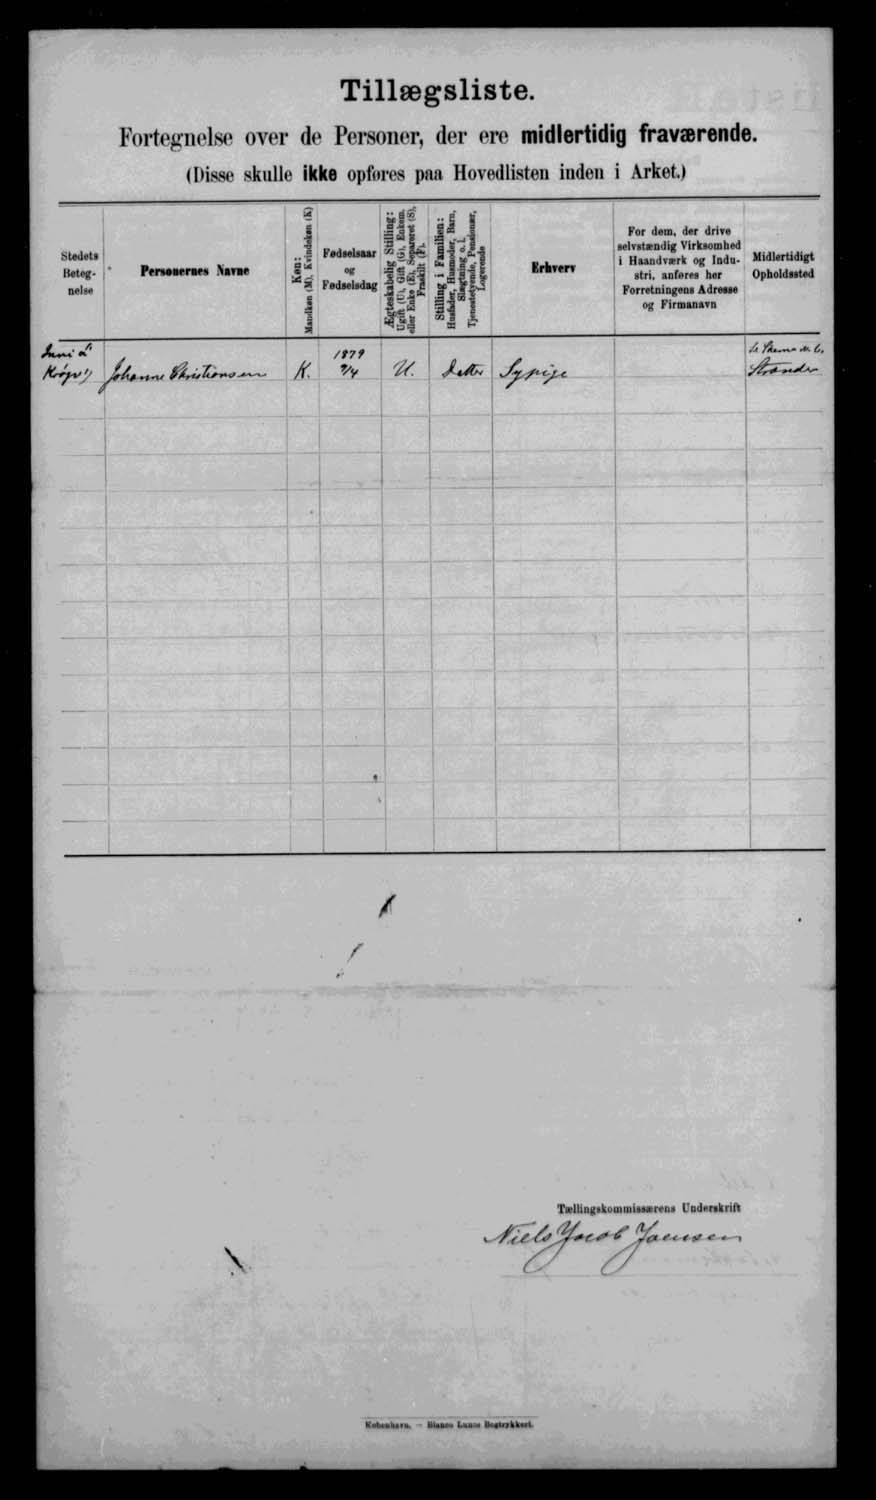 Tillægsliste.
Fortegnelse over de Personer, der ere midlertidig fraværende.
(Disse skulle ikke opføres paa Hovedlisten inden i Arket.)
Stedets
Beteg-
nelse
Personernes Navne
Køn:
Mandkøn (M), Kvindekøn (K)
Fødselsaar
og
Fødselsdag
Ægteskabelig Stilling:
Ugift (U), Gift (G), Enkem.
eller Enke (E), Separeret (S),
Fraskilt (F).
Stilling i Familien:
Husfader, Husmoder, Barn,
Slægtning o. l.
Tjenestetyende, Pensionær,
Logerende
Erhverv
For dem, der drive
selvstændig Virksomhed
i Haandværk og Indu-
stri, anføres her
Forretningens Adresse
og Firmanavn
Midlertidigt
Opholdssted
Inni á
Johanne Christiansen
K.
1879
U.
Datter
Sypige
Strander
Tællingskommissærens Underskrift
Niels Jacob Joensen
København. — Bianco Lunos Bogtrykkeri.